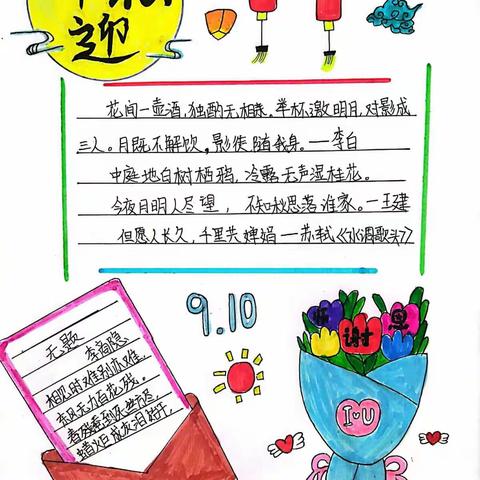 迎
花间一壶酒,独酌无相亲。举杯邀明月,对影成
三人。月既不解饮,影徒随我身。——李白
中庭地白树栖鸦,冷露无声湿桂花。
今夜月明人尽望,不知秋思落谁家。——王建
但愿人长久,千里共婵娟——苏轼《水调歌头》
9.10
无题
李商隐
相见时难别亦难,
东风无力百花残。
春蚕到死丝方尽,
蜡炬成灰泪始干。
师 谢 恩
I U